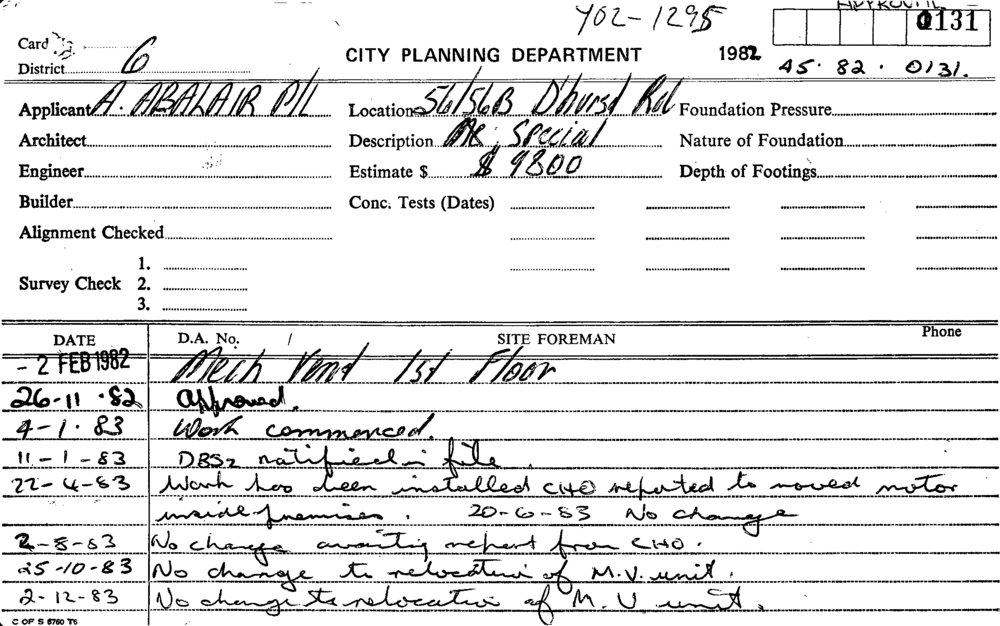 Y02-1295
APPROVAL
0131
Card
District 6
CITY PLANNING DEPARTMENT
1982
45. 82. 0131.
Applicant A. ABALAIR P/L
Location 56/56B D'hurst Rd
Foundation Pressure
Architect
Description Special
Nature of Foundation
Engineer
Estimate $ $ 9800
Depth of Footings
Builder
Conc. Tests (Dates)
Alignment Checked
Survey Check
1.
2.
3.
DATE
D.A. No. /
SITE FOREMAN
Phone
- 2 FEB 1982 Mech Vent 1st Floor
26-11.82 Approved.
4-1.83 Work commenced.
11-1-83 DBS2 notified in file.
22-4-83 Work has been installed CHO reported to moved motor
inside premises. 20-6-83 No change
2-8-83 No change awaiting report from CHO.
25-10-83 No change to relocation of M.V. unit.
2-12-83 No change to relocation of M.V. unit.
C OF S 6760 T6